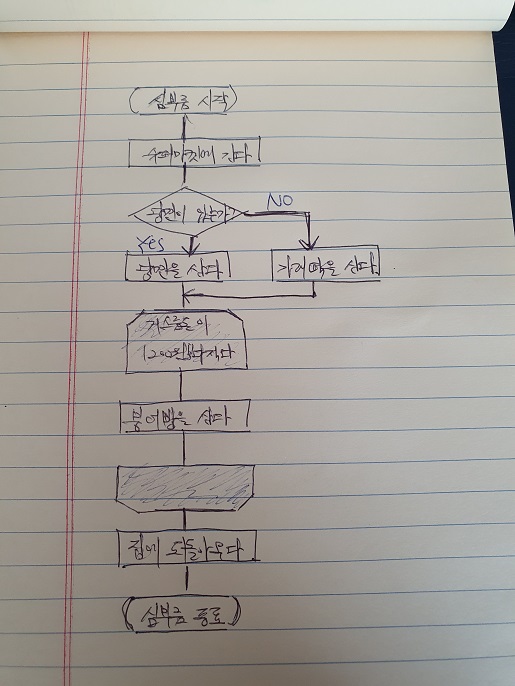 심부름 시작
수퍼마켓에 간다
당면이 있는가?
NO
Yes
당면을 산다
가래떡을 산다
거스름돈이
1200원보다 작다
붕어빵을 산다
집에 되돌아온다
심부름 종료